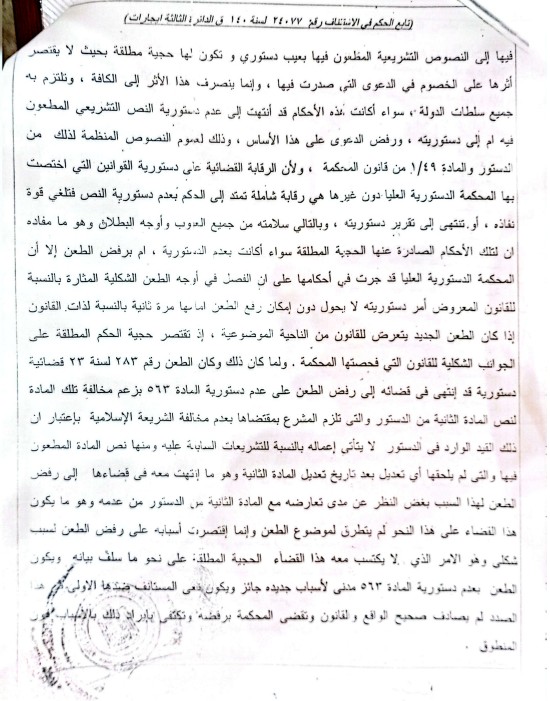 (تابع الحكم في الاستئناف رقم ٢٤٠٧٧ لسنة ١٤٠ ق الدائرة الثالثة ايجارات)
فيها إلى النصوص التشريعية المطعون فيها بعيب دستوري و تكون لها حجية مطلقة بحيث لا يقتصر
أثرها على الخصوم في الدعوى التي صدرت فيها ، وإنما ينصرف هذا الأثر إلى الكافة ، وتلتزم به
جميع سلطات الدولة ، سواء أكانت هذه الأحكام قد أنتهت إلى عدم دستورية النص التشريعي المطعون
فيه ام إلى دستوريته ، ورفض الدعوى على هذا الأساس ، وذلك لعموم النصوص المنظمة لذلك من
الدستور والمادة ١/٤٩ من قانون المحكمة ، ولأن الرقابة القضائية على دستورية القوانين التي اختصت
بها المحكمة الدستورية العليا دون غيرها هي رقابة شاملة تمتد إلى الحكم بعدم دستورية النص فتلغي قوة
نفاذه ، أو تنتهى إلى تقرير دستوريته ، وبالتالي سلامته من جميع العيوب وأوجه البطلان وهو ما مفاده
ان لتلك الأحكام الصادرة عنها الحجية المطلقة سواء أكانت بعدم الدستورية ، ام برفض الطعن إلا أن
المحكمة الدستورية العليا قد جرت في أحكامها على ان الفصل في أوجه الطعن الشكلية المثارة بالنسبة
للقانون المعروض أمر دستوريته لا يحول دون إمكان رفع الطعن امامها مرة ثانية بالنسبة لذات القانون
إذا كان الطعن الجديد يتعرض للقانون من الناحية الموضوعية ، إذ تقتصر حجية الحكم المطلقة على
الجوانب الشكلية للقانون التي فحصتها المحكمة . ولما كان ذلك وكان الطعن رقم ٢٨٣ لسنة ٢٣ قضائية
دستورية قد إنتهى فى قضائه إلى رفض الطعن على عدم دستورية المادة ٥٦٣ بزعم مخالفة تلك المادة
لنص المادة الثانية من الدستور والتى تلزم المشرع بمقتضاها بعدم مخالفة الشريعة الإسلامية بإعتبار ان
ذلك القيد الوارد فى الدستور لا يتأتى إعماله بالنسبة للتشريعات السابقة عليه ومنها نص المادة المطعون
فيها والتى لم يلحقها أي تعديل بعد تاريخ تعديل المادة الثانية وهو ما إنتهت معه في قضاءها إلى رفض
الطعن لهذا السبب بغض النظر عن مدى تعارضه مع المادة الثانية من الدستور من عدمه وهو ما يكون
هذا القضاء على هذا النحو لم يتطرق لموضوع الطعن وإنما إقتصرت أسبابه على رفض الطعن لسبب
شكلي وهو الامر الذي لا يكتسب معه هذا القضاء الحجية المطلقة على نحو ما سلف بيانه ويكون
الطعن بعدم دستورية المادة ٥٦٣ مدنى لأسباب جديده جائز ويكون نعى المستانف ضدها الاولى فى هذا
الصدد لم يصادف صحيح الواقع والقانون وتقضى المحكمة برفضه وتكتفى بإيراد ذلك بالأسباب دون
المنطوق .